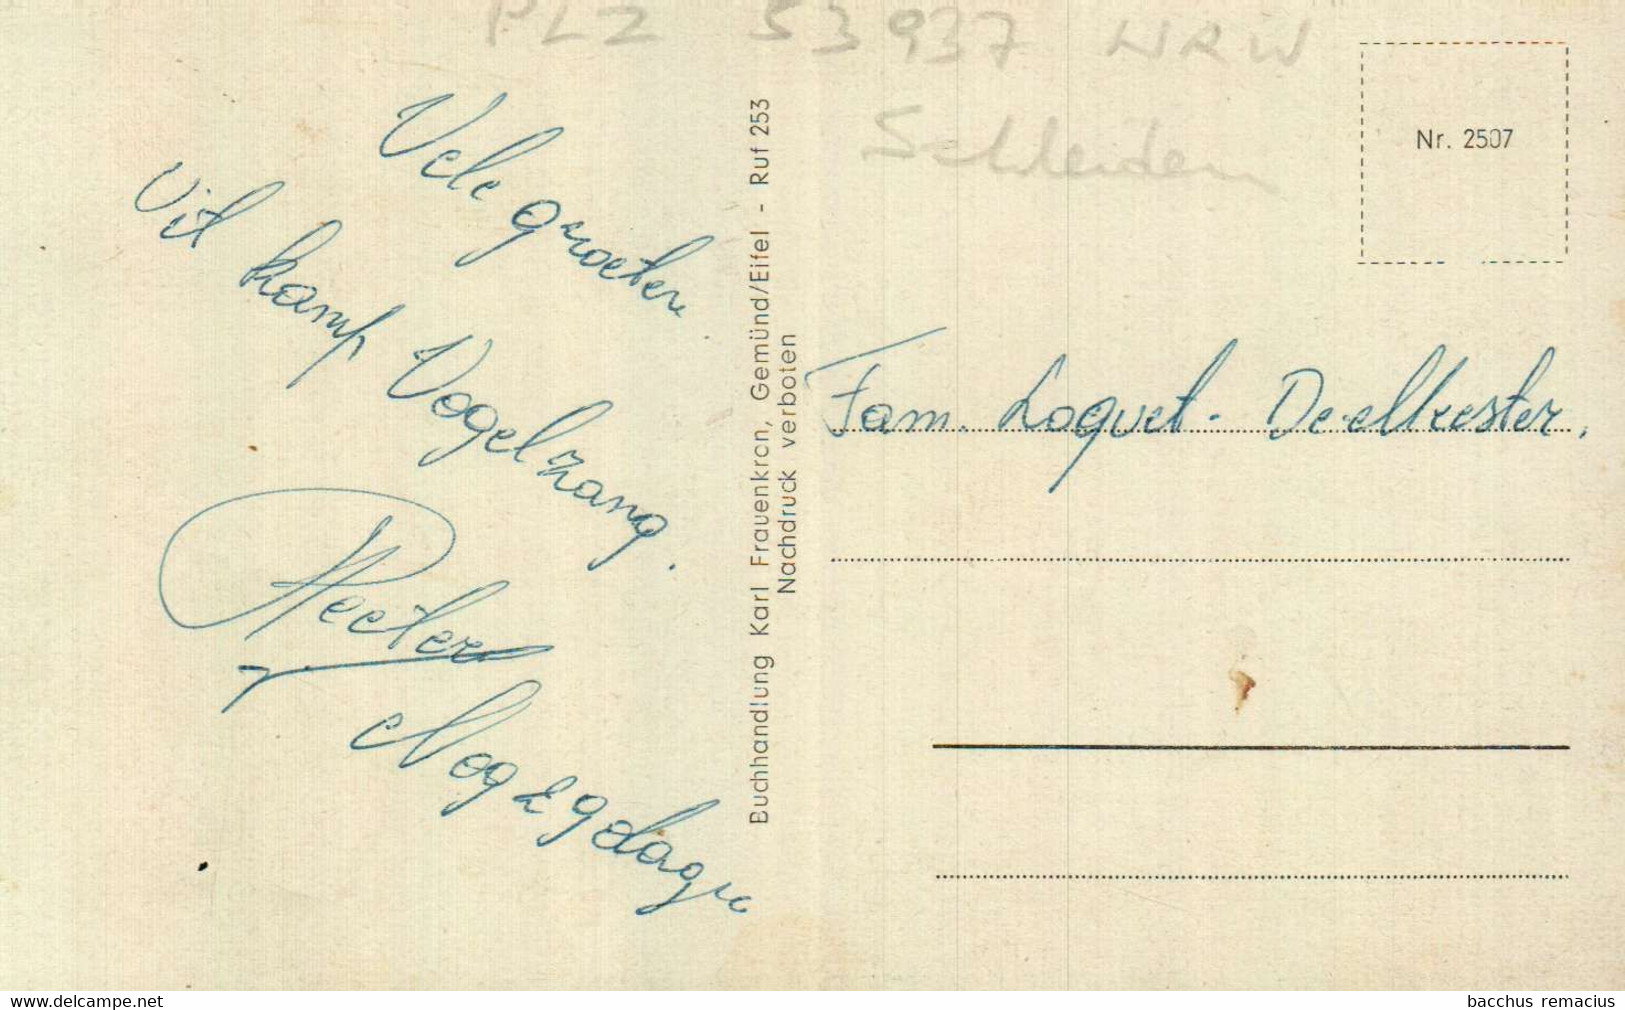 PLZ 53937 NRW
Schleiden
Nr. 2507
Vele groeten
Uit kamp Vogelzang.
Peeter
Nog 2 9 dagen
Buchhandlung Karl Frauenkron, Gemünd/Eifel - Ruf 253
Nachdruck verboten
Fam. Loquet - De-Meester.
www.delcampe.net
bacchus remacius